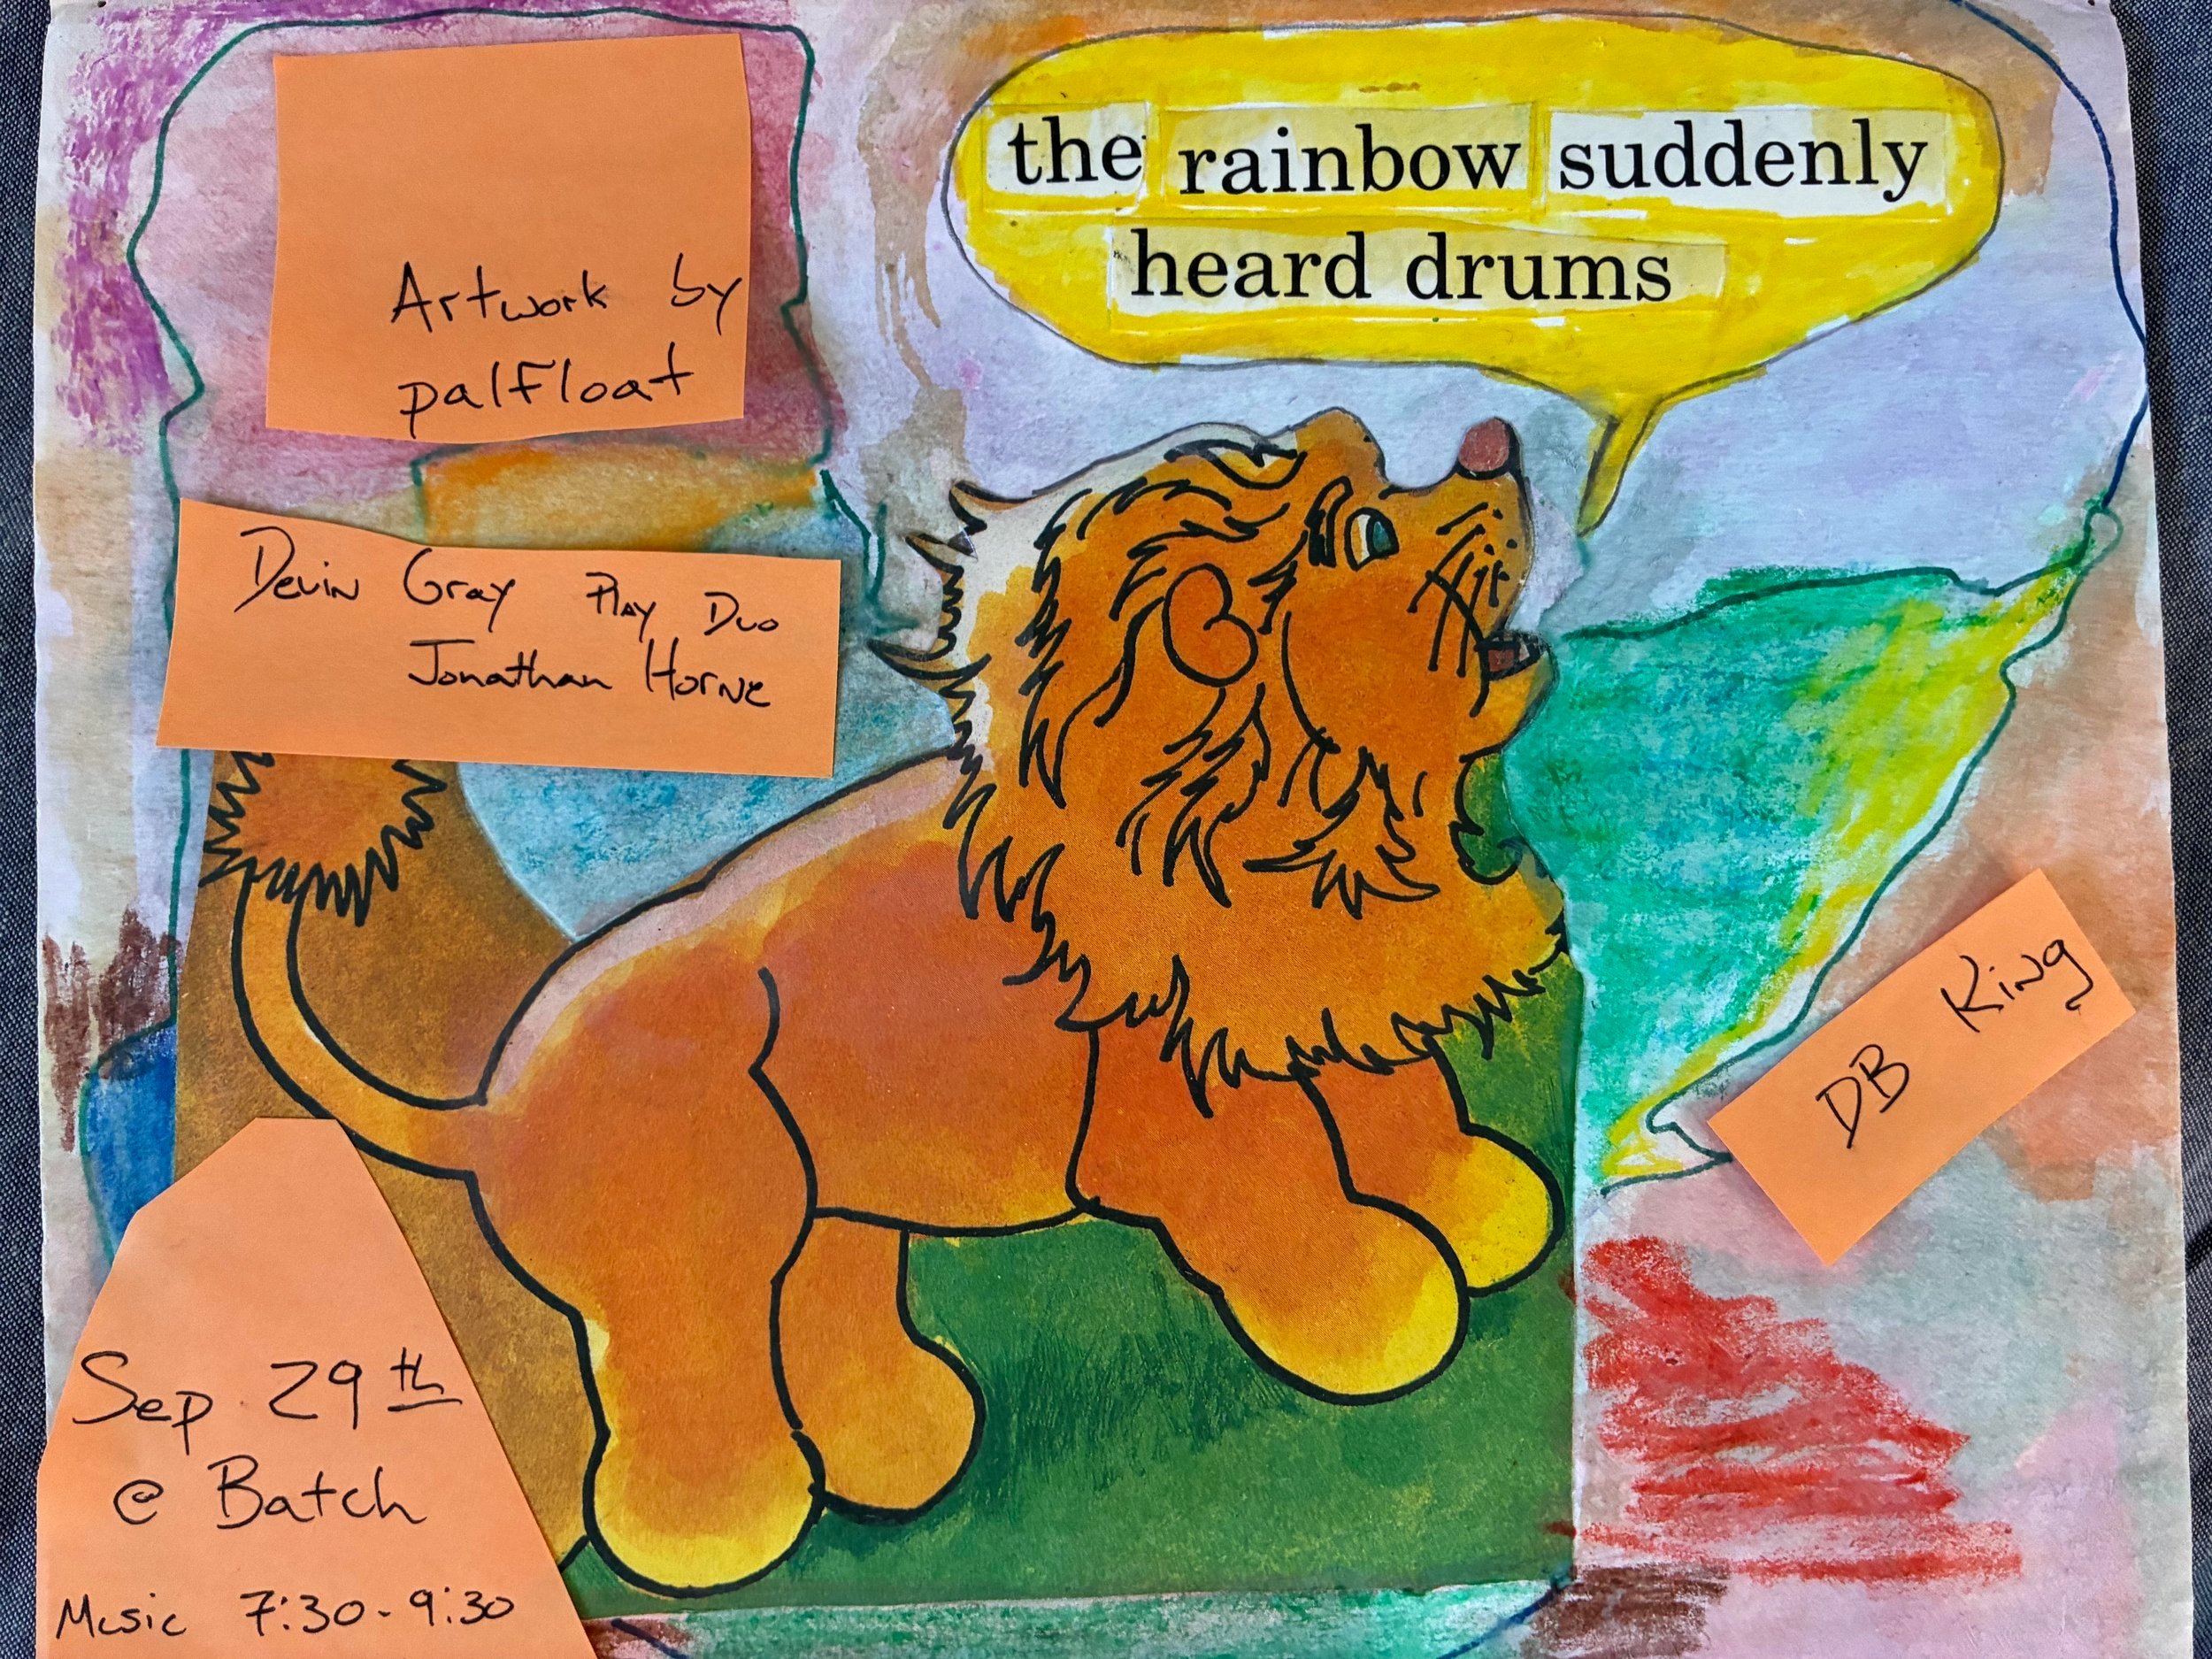 Artwork by
palfloat
the rainbow suddenly
heard drums
Devin Gray Play Duo
Jonathan Horne
DB King
Sep 29th
@ Batch
Music 7:30-9:30